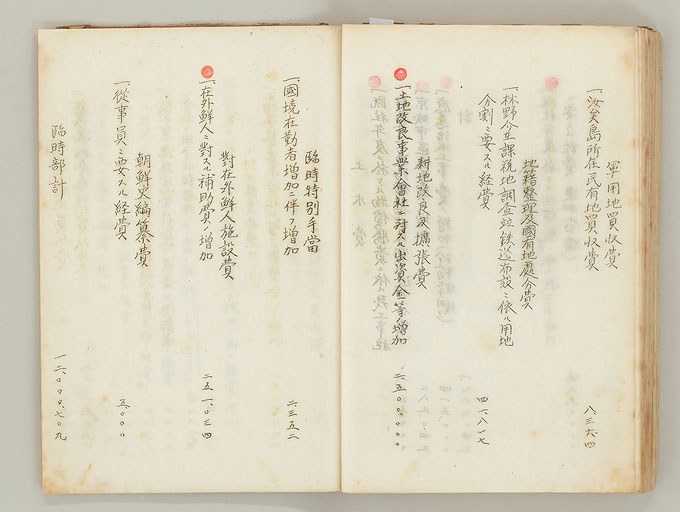 軍用地買收費
一、汝矣島所在民有地買收費 八三六四
地籍整理及國有地處分費
一、林野公立課税地調査竝鉄道布設ニ依ル用地
分割ニ要スル経費 四六八一七
耕地改良及擴張費
一、土地改良事業會社ニ対スル出資金等増加 二五〇、〇〇〇
臨時特別手當
一、國境在勤者増加ニ伴フ増加 二三五二
對在外鮮人施設費
一、在外鮮人ニ對スル補助費ノ増加 二五一、〇三四
朝鮮史編纂費
一、從事員ニ要スル経費 五、〇〇〇
臨時部計 一二、〇〇〇、七〇九